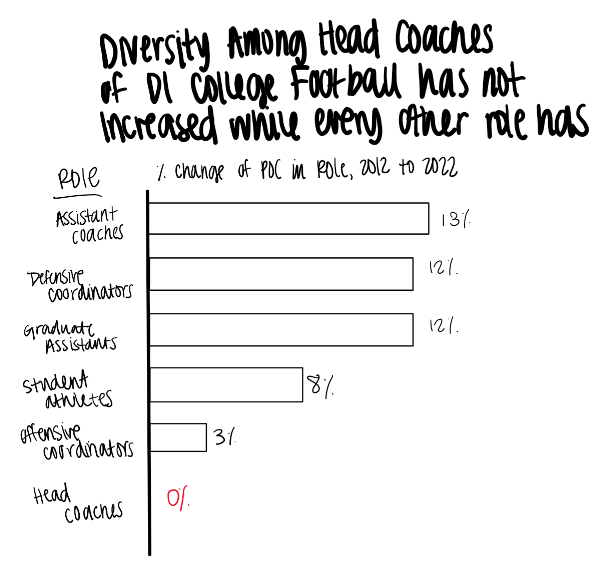 Diversity Among Head Coaches
of D1 College Football has not
increased while every other role has
ROLE
% change of POC in Role, 2012 to 2022
Assistant
coaches
13%
Defensive
coordinators
12%
Graduate
Assistants
12%
Student
athletes
8%
Offensive
coordinators
3%
Head
coaches
0%